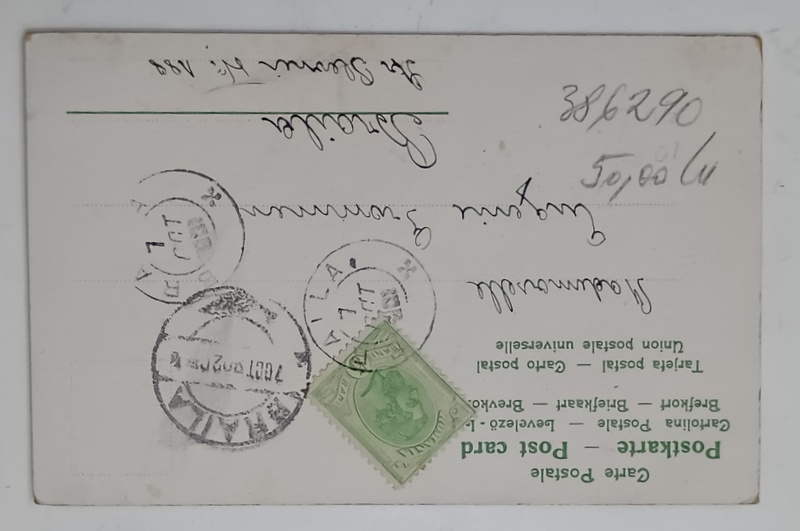 Carte Postale
Postkarte — Post card
Cartolina Postale — Levelező-l
Brefkort — Briefkaart — Brevko
Tarjeta postal — Carto postal
Union postale universelle
Mademoiselle
Eugenie
Braila
Nº. 188
386290
50,00
BRAILA
7 OCT 902
AILA
7 OCT
ROMANIA
5 BANI 5